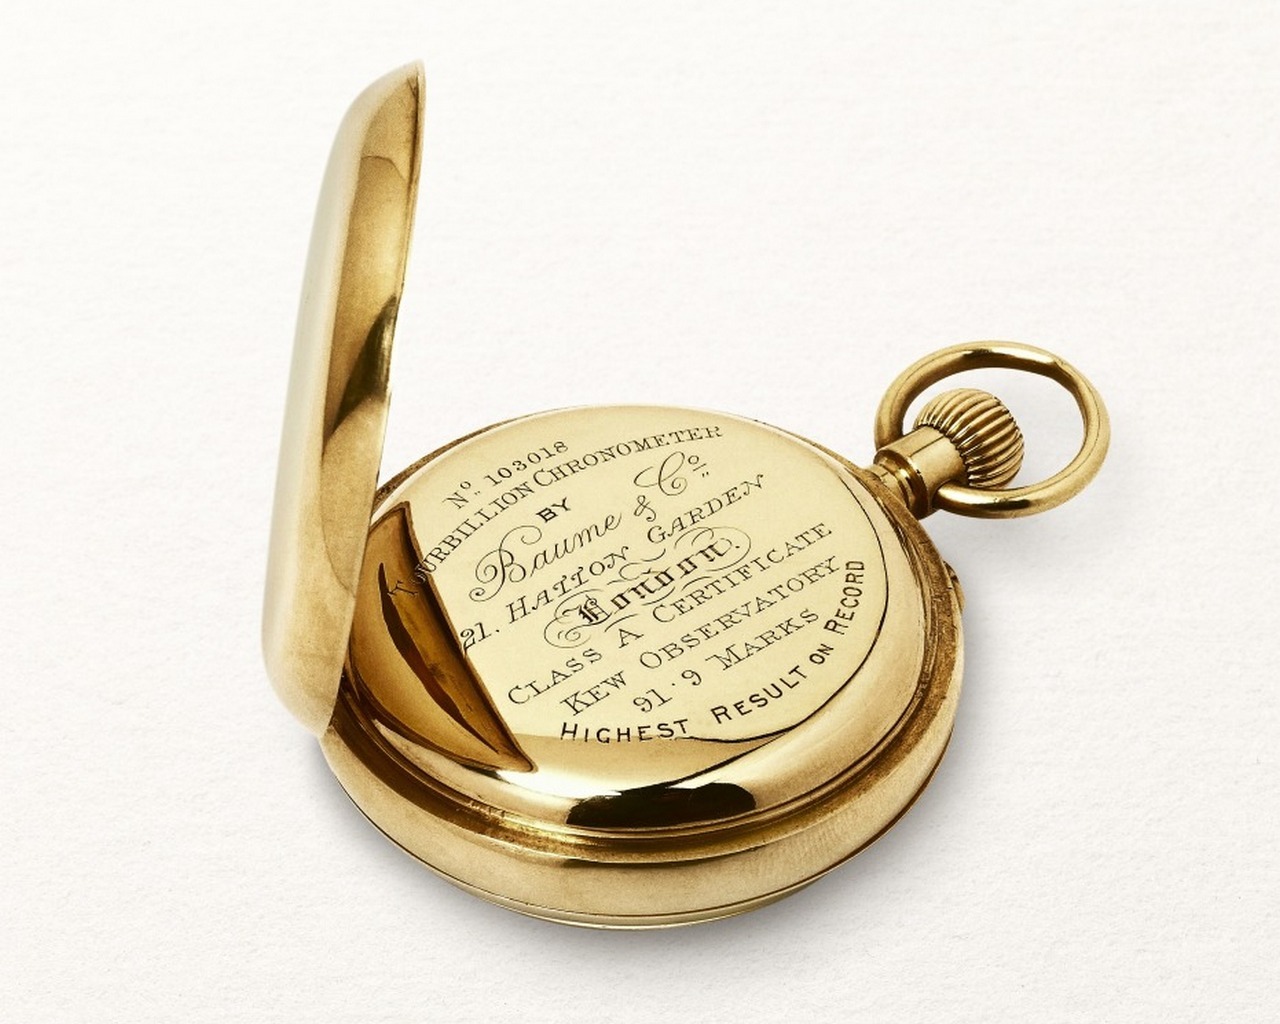 No. 103018
TOURBILLION CHRONOMETER
BY
Baume & Co.
21. HATTON GARDEN
London.
CLASS A CERTIFICATE
KEW OBSERVATORY
91·9 MARKS
HIGHEST RESULT ON RECORD